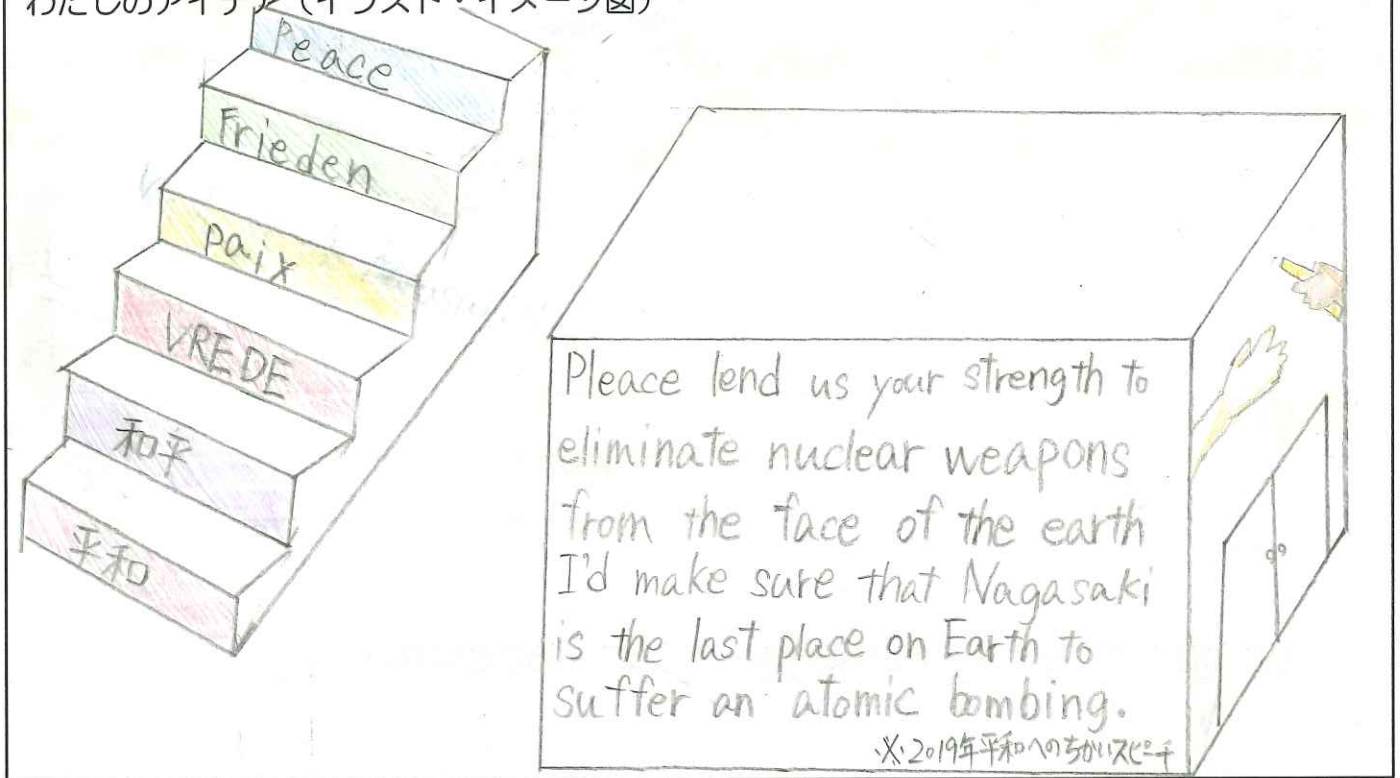 わたしのアイデア（イラスト・イメージ図）
Peace
Frieden
paix
VREDE
和平
平和
Pleace lend us your strength to
eliminate nuclear weapons
from the face of the earth
I'd make sure that Nagasaki
is the last place on Earth to
suffer an atomic bombing.
※2019年平和へのちかいスピーチ